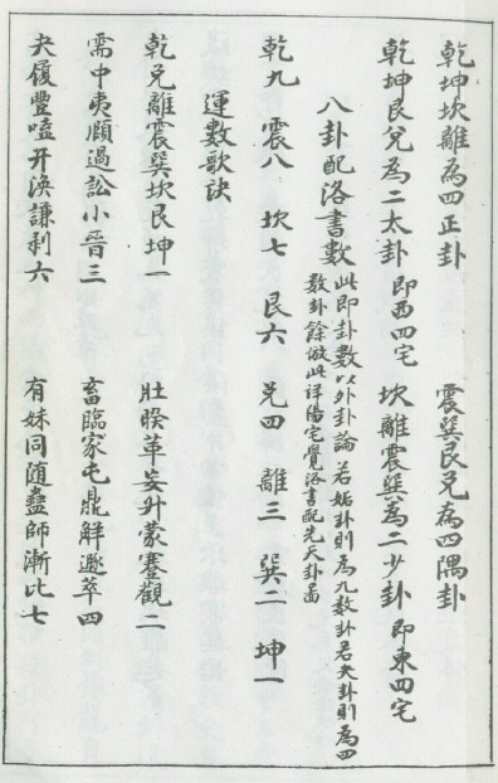 乾坤坎離為四正卦　震巽艮兌為四隅卦
乾坤艮兌為二太卦　即西四宅　坎離震巽為二少卦　即東四宅
八卦配洛書數
此即卦數以外卦論若姤卦則為九數卦若夬卦則為四
数卦餘倣此詳陽宅覺洛書配先天卦圖
乾九　震八　坎七　艮六　兌四　離三　巽二　坤一
運數歌訣
乾兌離震巽坎艮坤一　壯睽革妄升蒙蹇觀二
需中夷頤過訟小晉三　畜臨家屯鼎解遯萃四
夬履豐嗑井渙謙剥六　有妹同随蠱師漸比七